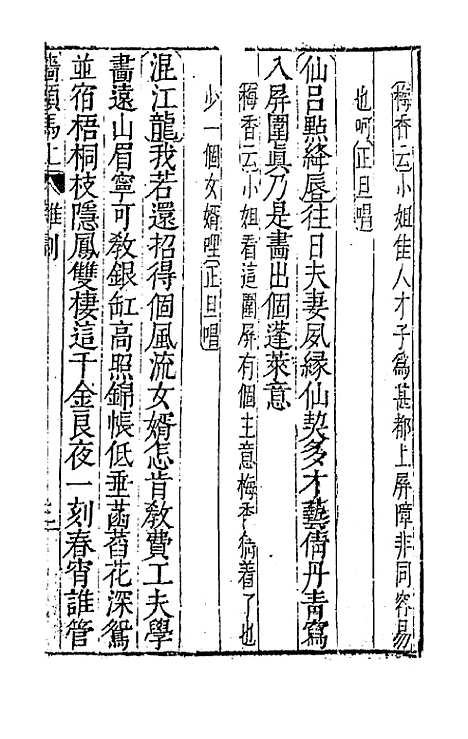 梅香云小姐佳人才子為甚都上屏障非同容易
也呵正旦唱
仙呂㸃絳唇往日夫妻夙緣仙契多才藝倩丹青寫
入屏圍真乃是畵出個蓬萊意
梅香云小姐看這圍屏有個主意梅香猜着了也
少一個女婿哩正旦唱
混江龍我若還招得個風流女婿怎肯教費工夫學
畵遠山眉寧可教銀缸高照錦帳低垂菡萏花深鴛
並宿梧桐枝隱鳳雙棲這千金良夜一刻春宵誰管
墻頭馬上 雜劇